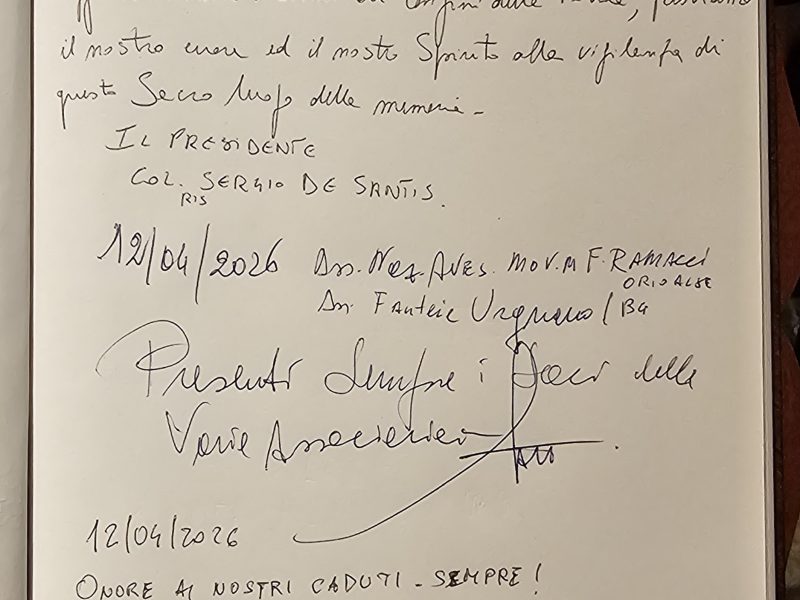 il nostro cuore ed il nostro Spirito alla vigilanza di
questo Sacro luogo della memoria -
IL PRESIDENTE
COL. RIS SERGIO DE SANTIS.
12/04/2026 Ass. Naz. AVES. MOV.M F. RAMACCI
ORIO AL SE
Ass. Fanteie Urgnano / BG
Presenti Sempre i Soci delle
Varie Associazioni
12/04/2026
ONORE AI NOSTRI CADUTI - SEMPRE!